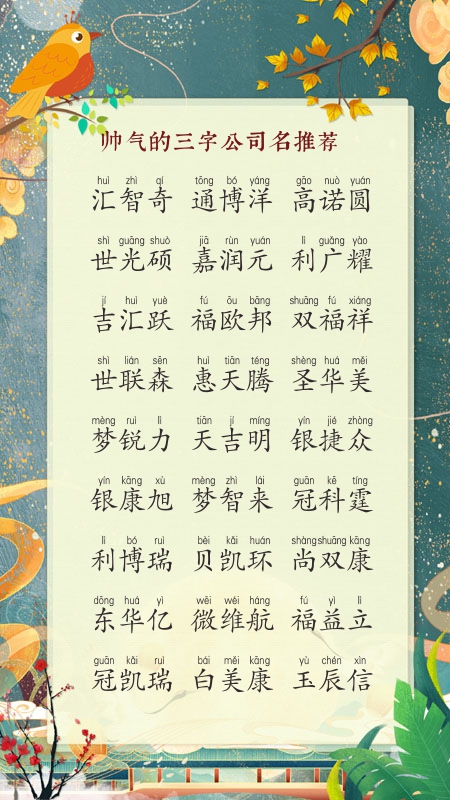 帅气的三字公司名推荐
huì zhì qí tōng bó yáng gāo nuò yuán
汇智奇 通博洋 高诺圆
shì guāng shuò jiā rùn yuán lì guǎng yào
世光硕 嘉润元 利广耀
jí huì yuè fú ōu bāng shuāng fú xiáng
吉汇跃 福欧邦 双福祥
shì lián sēn huì tiān téng shèng huá měi
世联森 惠天腾 圣华美
mèng ruì lì tiān jí míng yín jié zhòng
梦锐力 天吉明 银捷众
yín kāng xù mèng zhì lái guān kē tíng
银康旭 梦智来 冠科霆
lì bó ruì bèi kǎi huán shàng shuāng kāng
利博瑞 贝凯环 尚双康
dōng huá yì wēi wéi háng fú yì lì
东华亿 微维航 福益立
guān kǎi ruì bái měi kāng yù chén xìn
冠凯瑞 白美康 玉辰信